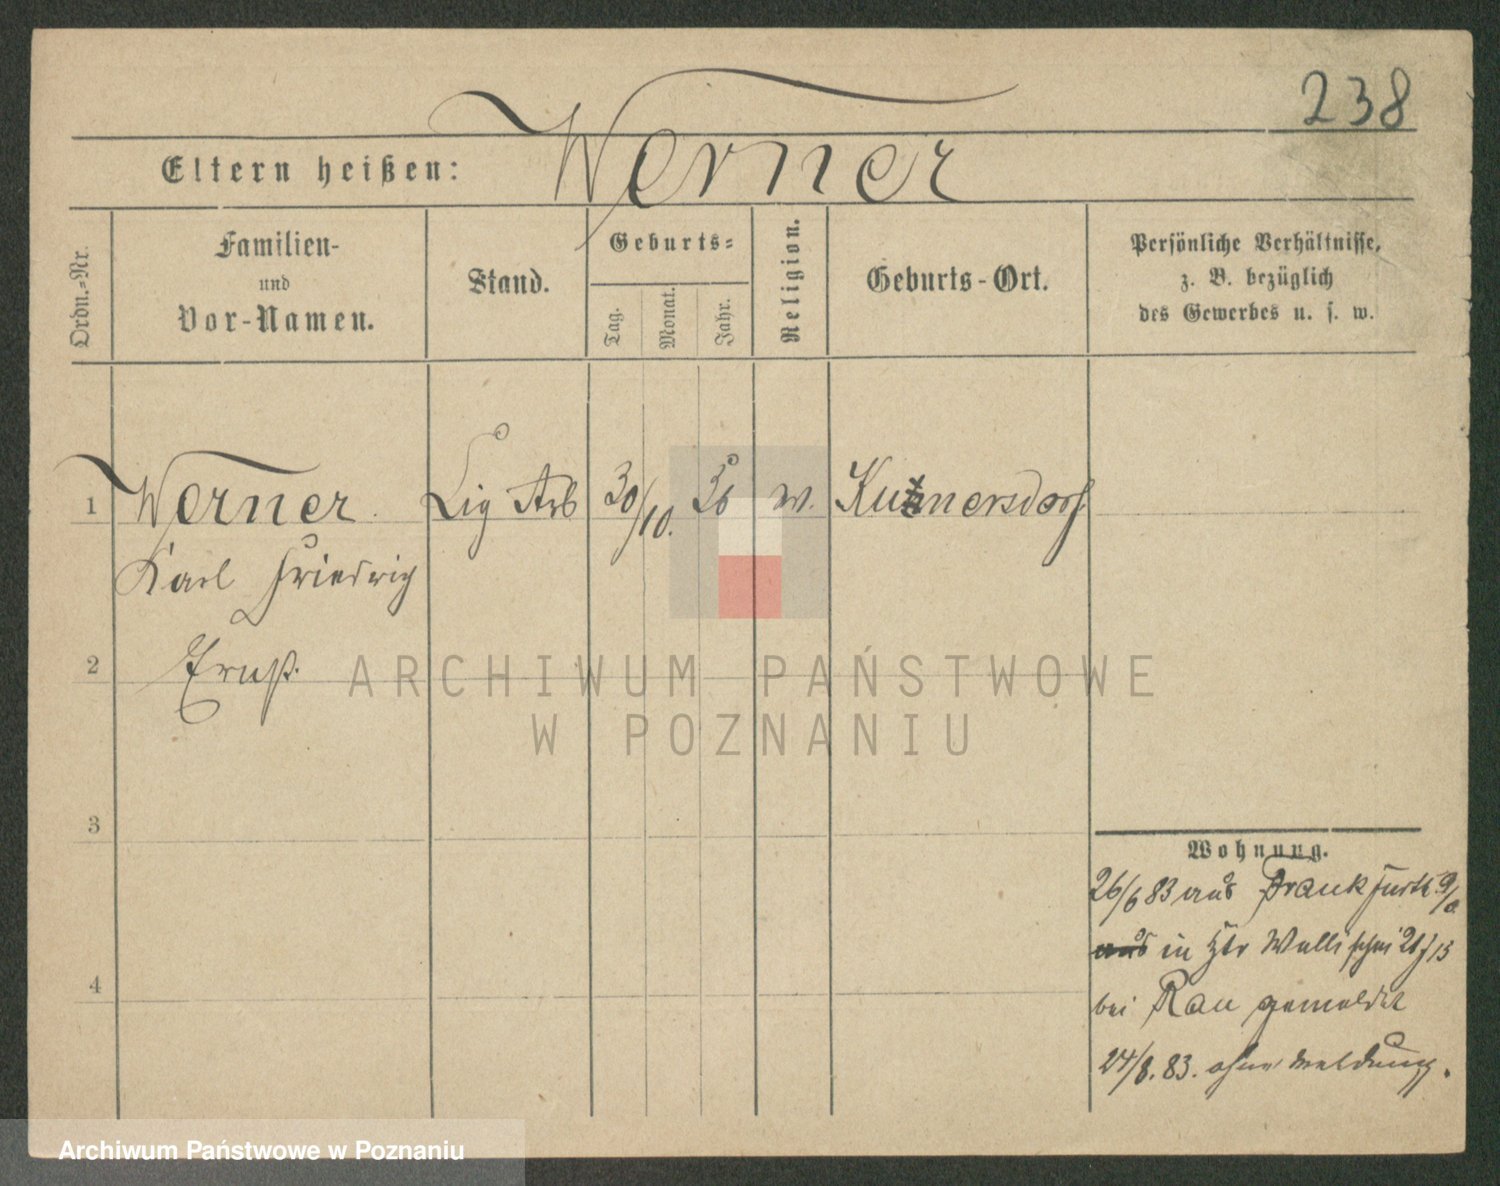 238
Eltern heißen: Werner
Ordn.-Nr.
Familien-
und
Vor-Namen.
Stand.
Geburts-
Tag.
Monat.
Jahr.
Religion.
Geburts-Ort.
Persönliche Verhältnisse,
z. B. bezüglich
des Gewerbes u. s. w.
1 Werner Cig Arb 30/10. 36 w.
Karl Friedrich
2 Ernst.
3
4
Wohnung.
26/6 83 aus Frankfurth a/O.
aus in Wallischei
bei Rau gemeldet
24/8. 83. ohne Meldung.
ARCHIWUM PAŃSTWOWE
W POZNANIU
Archiwum Państwowe w Poznaniu